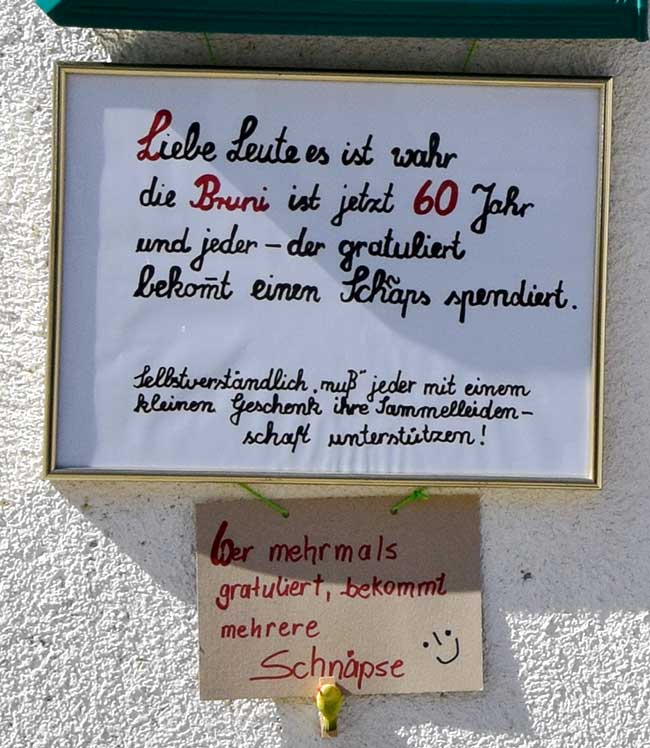 Liebe Leute es ist wahr
die Bruni ist jetzt 60 Jahr
und jeder – der gratuliert
bekom̅t einen Schñaps spendiert.
Selbstverständlich „muß" jeder mit einem
kleinen Geschenk ihre Sammelleiden-
schaft unterstützen!
Wer mehrmals
gratuliert, bekommt
mehrere
Schnäpse